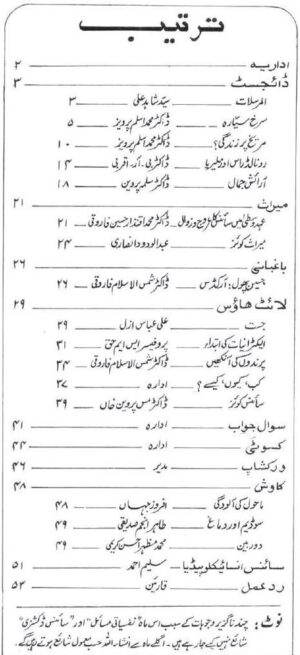 ترتیب
اداریہ ۲
ڈائجسٹ ۳
المرسلات سید شاہد علی ۳
سرخ سیارہ ڈاکٹر محمد اسلم پرویز ۵
مریخ پر زندگی؟ ڈاکٹر محمد اسلم پرویز ۱۰
رونالڈ راس اور ملیریا ڈاکٹر بی۔ آر۔ اقربی ۱۴
آرائش جمال ڈاکٹر سلمہ پروین ۱۸
میراث ۲۱
عہد وسطیٰ میں سائنس کا عروج و زوال ڈاکٹر محمد اقتدار حسین فاروقی ۲۱
میراث کوئز عبدالودود انصاری ۲۴
باغبانی ۲۶
حسین پھول: آرکڈس ڈاکٹر شمس الاسلام فاروقی ۲۶
لائٹ ھاؤس ۲۹
جست علی عباس ازل ۲۹
الیکٹرانیات کی ابتداء پروفیسر ایس ایم حق ۳۱
پرندوں کی آنکھیں ڈاکٹر شمس الاسلام فاروقی ۳۴
کب، کیوں، کیسے؟ ادارہ ۳۷
سائنس کوئز ڈاکٹر مس پروین خاں ۳۹
سوال جواب ادارہ ۴۱
کسوٹی ادارہ ۴۴
ورکشاپ مدیر ۴۶
کاوش ۴۸
ماحول کی آلودگی افروز جہاں ۴۸
سوڈیم اور دماغ طاہر انجم صدیقی ۴۹
دوربین محمد مظہر احسن کریمی ۴۹
سائنس انسائیکلوپیڈیا سلیم احمد ۵۱
ردعمل قارئین ۵۳
نوٹ: چند ناگزیر وجوہات کے سبب اس ماہ "نفسیاتی مسائل" اور "سائنس ڈکشنری"
شائع نہیں کیے جا رہے ہیں۔ اگلے ماہ سے انشاء اللہ حسب معمول شائع ہوتے رہیں گے۔